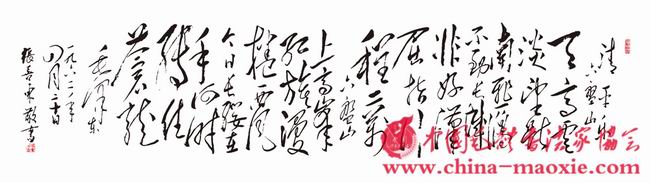 清平乐
六盘山
天高云
淡望断
南飞雁
不到长城
非好汉
屈指行
程二万
六盘山
上高峰
红旗漫
卷西风
今日长缨在
手何时
缚住
苍龙
毛泽东
四月二十日
中国毛体书法家協会
www.china-maoxie.com